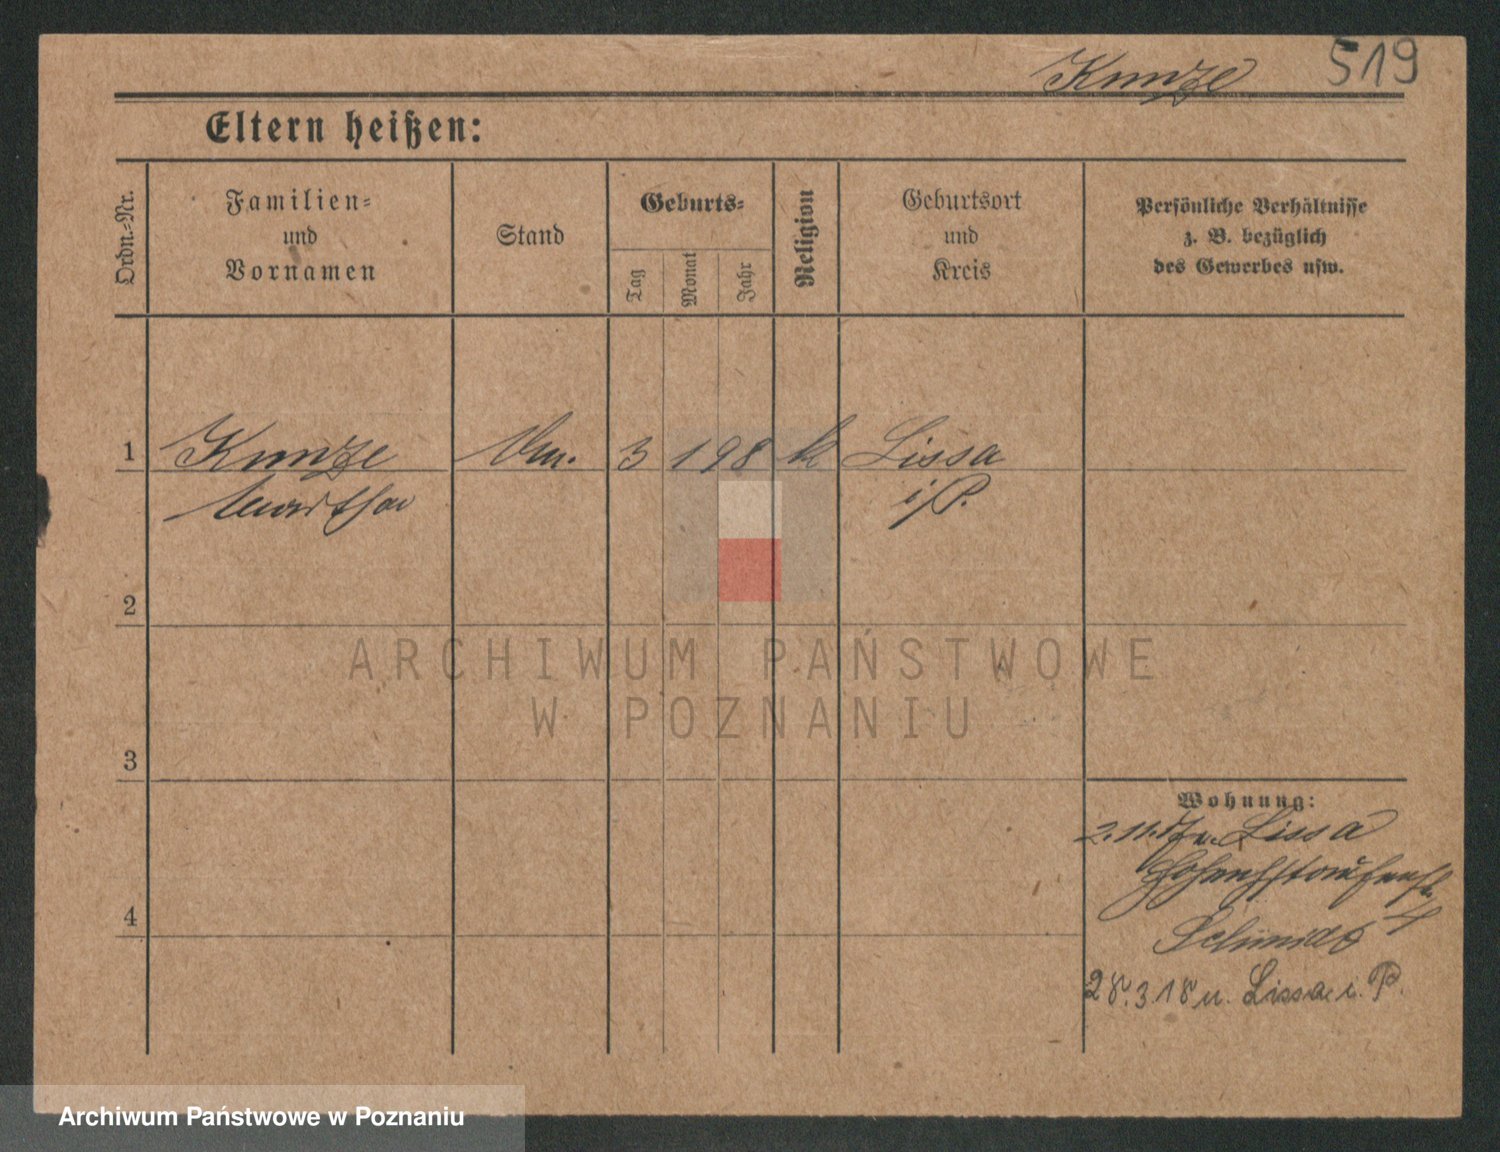 Kunze 519
Eltern heißen:
Ordn.-Nr.
Familien-
und
Vornamen
Stand
Geburts-
Tag
Monat
Jahr
Religion
Geburtsort
und
Kreis
Persönliche Verhältnisse
z. B. bezüglich
des Gewerbes usw.
1 Kunze 3 1 98 k Lissa
Martha i/P.
2
3
4
Wohnung:
Lissa
Hohenstaufenstr.
4
Schmidt
28.3.18 n. Lissa i. P.
ARCHIWUM PAŃSTWOWE
W POZNANIU
Archiwum Państwowe w Poznaniu